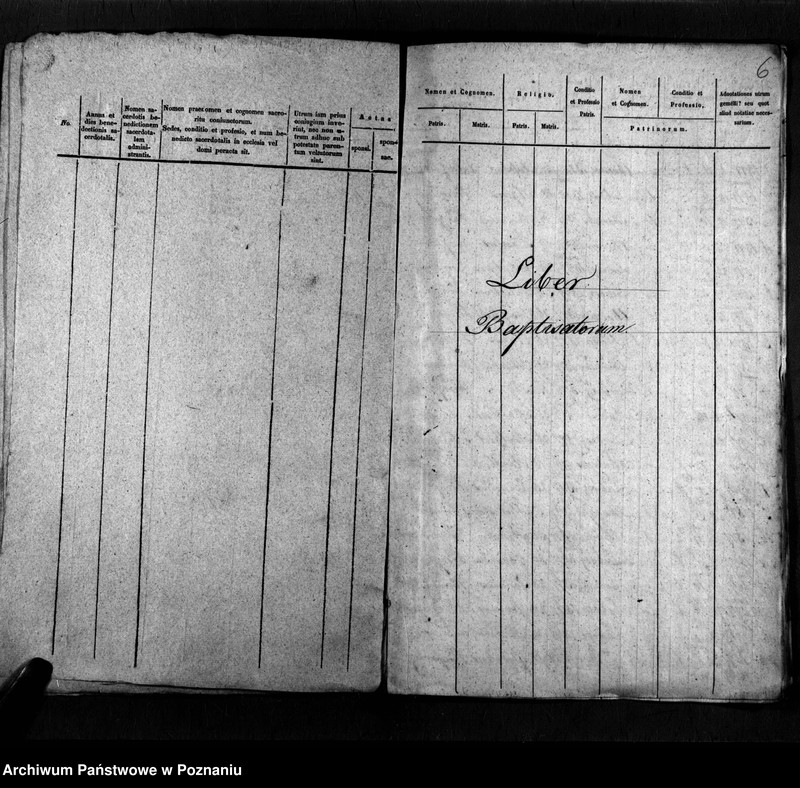 No.
Annus et
dies bene-
dictionis sa-
cerdotalis.
Nomen sa-
cerdotis be-
nedictionem
sacerdota-
lem
admini-
strantis.
Nomen praenomen et cognomen sacro-
ritu coniunctorum.
Sedes, conditio et profesio, et num be-
nedictio sacerdotalis in ecclesia vel
domi peracta sit.
Utrum iam prius
coniugium inve-
rint, nec non u-
trum adhuc sub
potestate paren-
tum vel tutorum
sint.
Aetas
sponsi.
spon-
sae.
6
Nomen et Cognomen.
Patris.
Matris.
Religio.
Patris.
Matris.
Conditio
et Professio
Patris.
Nomen
et Cognomen.
Conditio et
Professio.
Patrinorum.
Adnotationes utrum
gemelli? seu quot
aliud notatine neces-
sarium.
Liber
Baptisatorum.
Archiwum Państwowe w Poznaniu